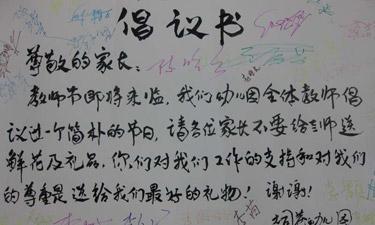 倡议书
尊敬的家长：
教师节即将来临，我们幼儿园全体教师倡
议过一个简朴的节日，请各位家长不要给老师送
鲜花及礼品，你们对我们工作的支持和对我们
的尊重是送给我们最好的礼物！谢谢！
幼儿园